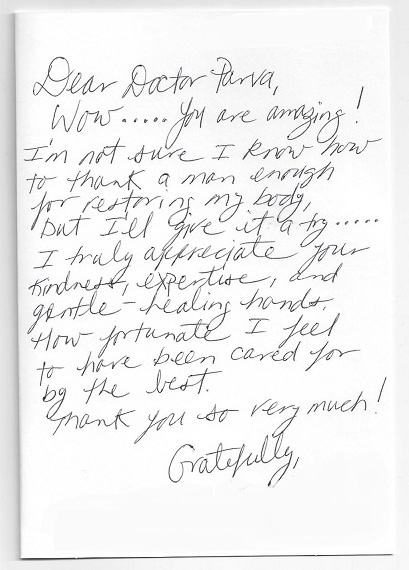 Dear Doctor Parva,
Wow..... You are amazing!
I'm not sure I know how
to thank a man enough
for restoring my body,
but I'll give it a try.....
I truly appreciate your
kindness, expertise, and
gentle-healing hands.
How fortunate I feel
to have been cared for
by the best.
Thank you so very much!
Gratefully,